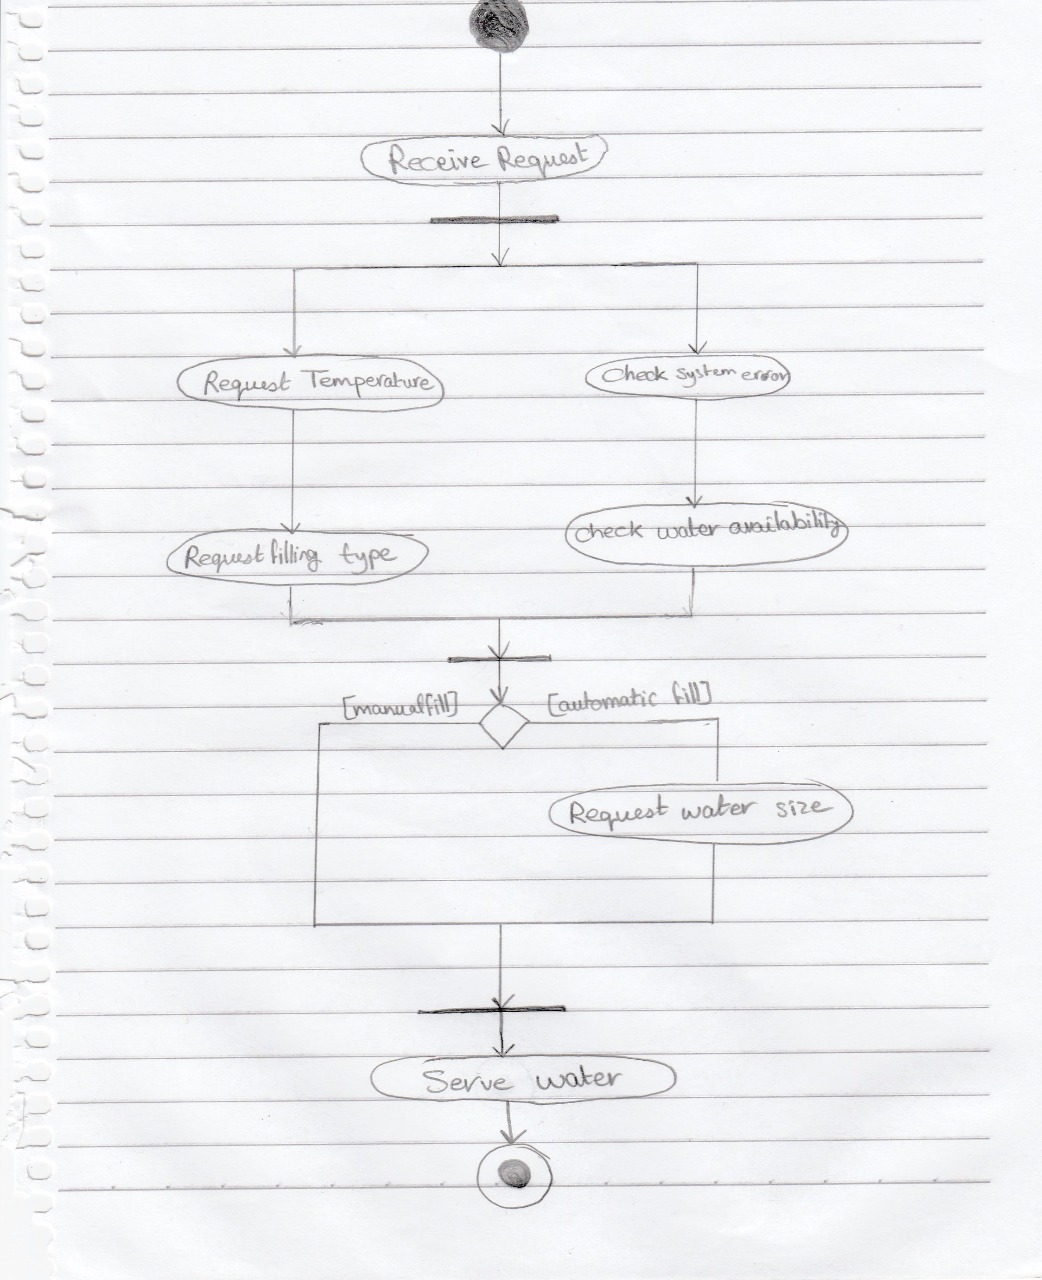 Receive Request
Request Temperature
Check system error
Request filling type
check water availability
[manual fill]
[automatic fill]
Request water size
Serve water